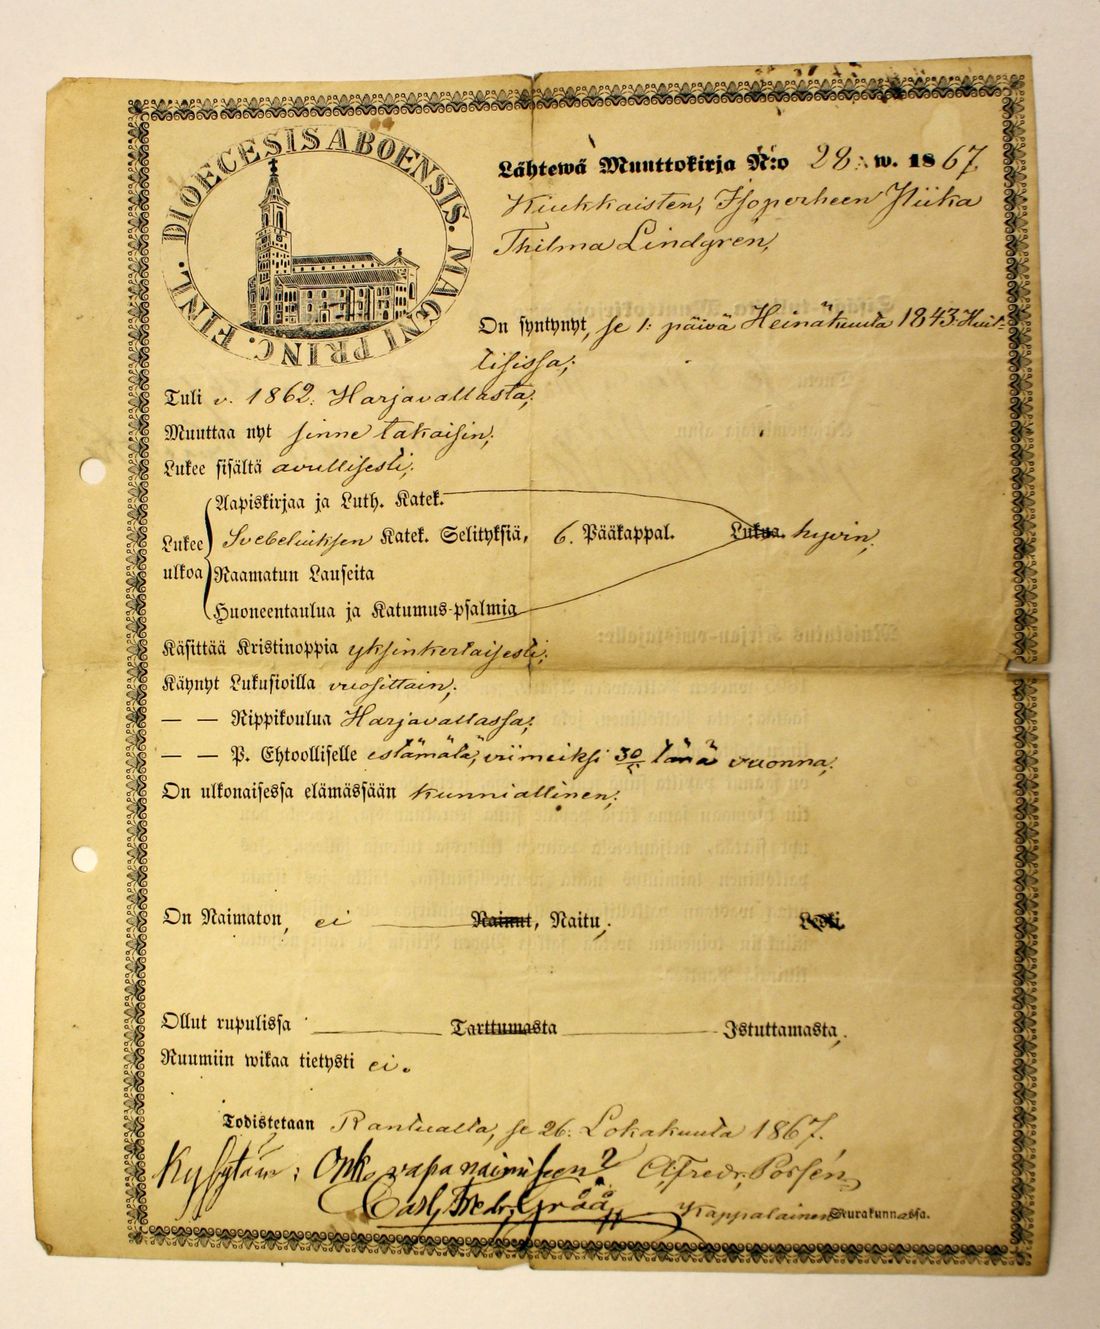 DIOECESIS ABOENSIS. MAGNI PRINC. FINL.
Lähtewä Muuttokirja N:o 28: w. 1867
Kiukkaisten, Isoperheen Piika
Thilma Lindgrén,
On syntynyt, se 1: päivä Heinäkuuta 1843 Huit-
tisissa;
Tuli v. 1862: Harjavallasta;
Muuttaa nyt sinne takaisin;
Lukee sisältä avullisesti;
Aapiskirjaa ja Luth. Katek.
Lukee ulkoa Svebeliuksen Katek. Selityksiä, 6. Pääkappal. Lukua. hyvin;
Raamatun Lauseita
Huoneentaulua ja Katumus-psalmia
Käsittää Kristinoppia yksinkertaisesti;
Käynyt Lukusioilla vuosittain;
— — Rippikoulua Harjavallassa;
— — P. Ehtoolliselle estämätä; viimeiksi 30/5 tänä vuonna;
On ulkonaisessa elämässään kunniallinen;
On Naimaton, ei Nainut, Naitu; Leski.
Ollut rupulissa Tarttumasta Istuttamasta;
Ruumiin wikaa tietysti ei.
Todistetaan Rantualta, se 26: Lokakuuta 1867.
Kysytään: Onko vapa naimiseen? Alfredr. Porsén
Carl Fredr. Gråå Kappalainen Seurakunnassa.